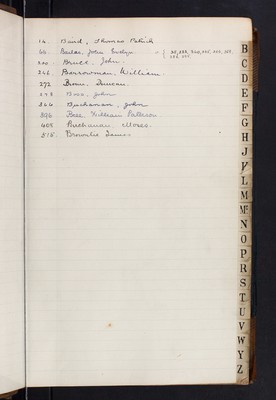 14. Baird, Thomas Patrick
64. Barlas, John Evelyn
200. Bruce, John.
246. Barrowman, William.
272 Bruce, Duncan
278 Boss, John
344 Buchanan, John
396 Bell, William Patterson
408 Buchanan, Moses
515. Brownlie James
B
C
D
E
F
G
H
J
K
L
M
Mc
N
O
P
R
S
T
U
V
W
Y
Z